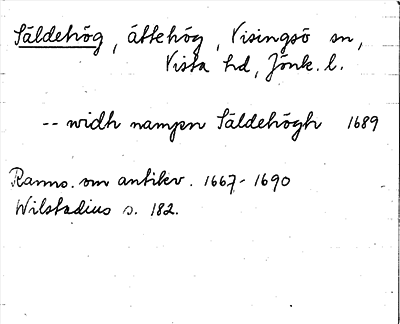 Säldehög, ättehög, Visingsö sn,
Vista hd, Jönk. l.
-- widh nampn Säldehögh 1689
Ranns. om antikv. 1667-1690
Wilstadius s. 182.